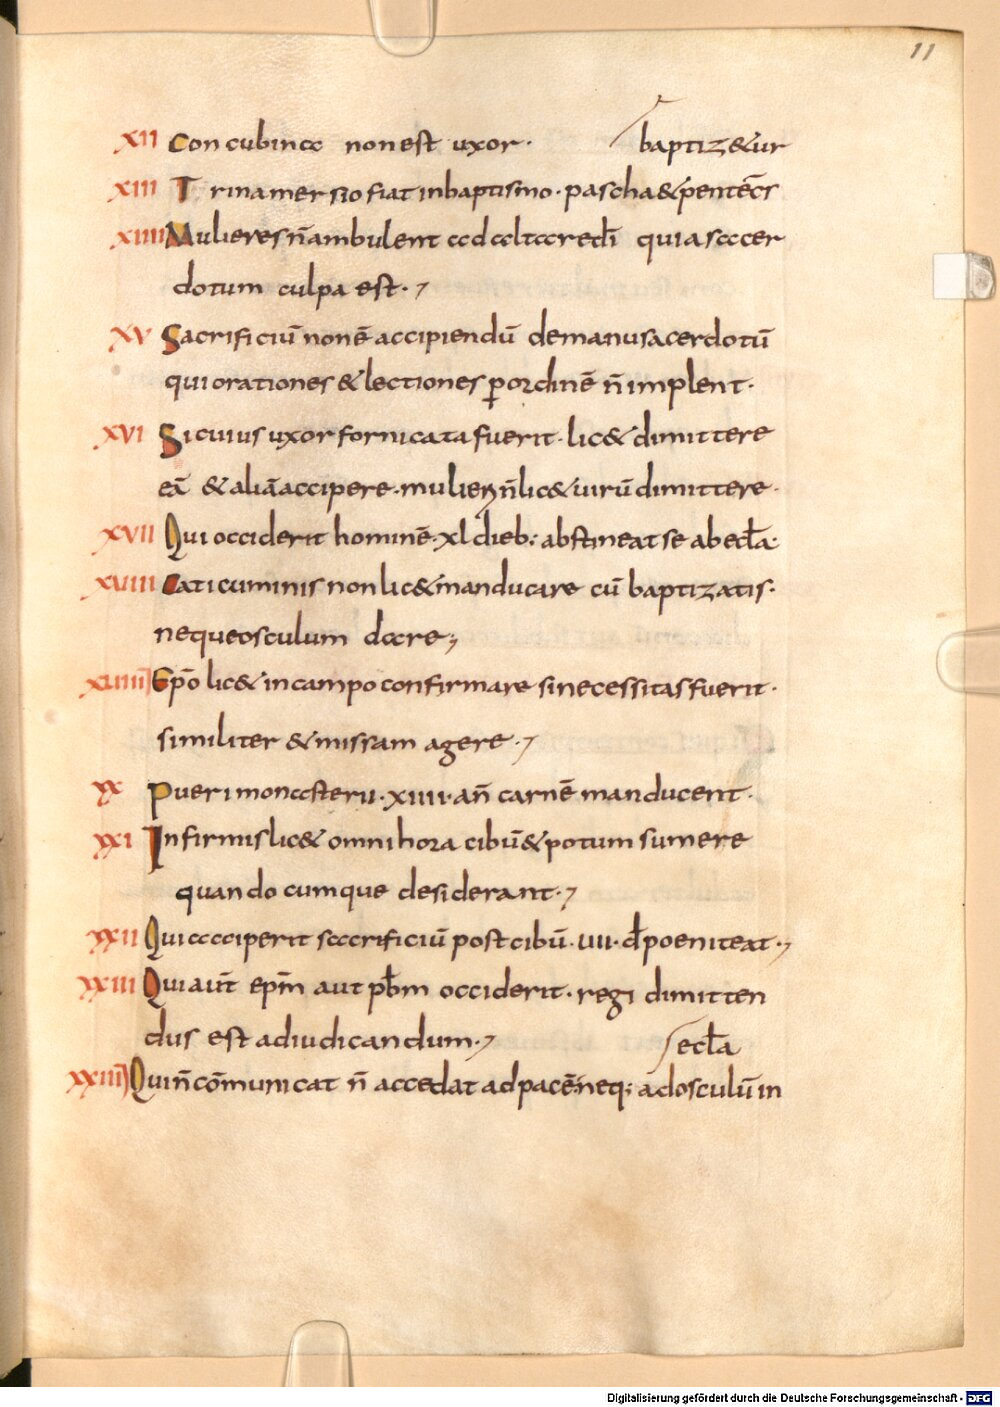 11
XII Concubina non est uxor· baptiz&ur
XIII Trina mersio fiat in baptismo· pascha & pentec̄s
XIIII Mulieres n̄ ambulent ad altare dn̄i quia sacer
dotum culpa est·,
XV Sacrificiū non ē accipiendū de manu sacerdotū
qui orationes & lectiones ꝑ ordinē n̄ implent·
XVI Si cuius uxor fornicata fuerit· lic& dimittere
eā & aliā accipere· mulieri n̄ lic& uirū dimittere·
XVII Qui occiderit hominē· xl dieb; abstineat se ab eccl̄a·
XVIII Caticuminis non lic& manducare cū baptizatis·
neque osculum dare;
XVIIII Ep̄o lic& in campo confirmare si necessitas fuerit·
similiter & missam agere·,
XX Pueri monasterii· XIIII· an̄ carnē manducent·
XXI Infirmis lic& omni hora cibū & potum sumere
quandocumque desiderant·,
XXII Qui acciperit sacrificiū post cibū· UII· d̄ poeniteat·,
XXIII Qui aut̄ ep̄m aut pb̄m occiderit· regi dimitten
dus est adiudicandum·, eccl̄a
XXIIII Qui n̄ cōmunicat n̄ accedat ad pacē· neq; ad osculū in
Digitalisierung gefördert durch die Deutsche Forschungsgemeinschaft - DFG